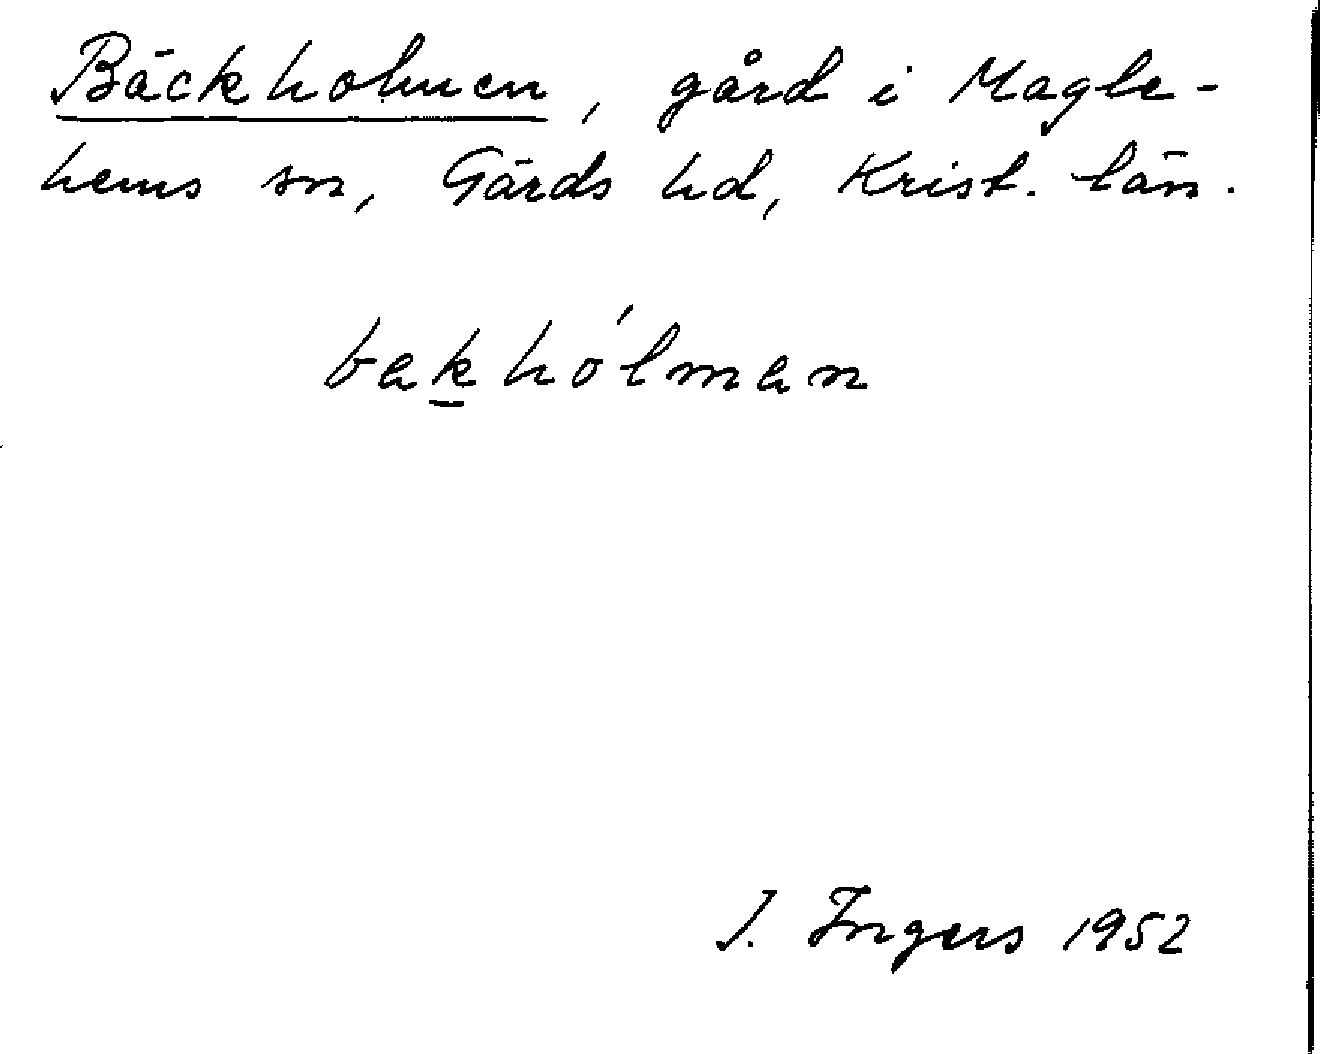 Bäckholmen, gård i Magle-
hems sn, Gärds hd, Krist. län.
bakhólman
I. Ingers 1952